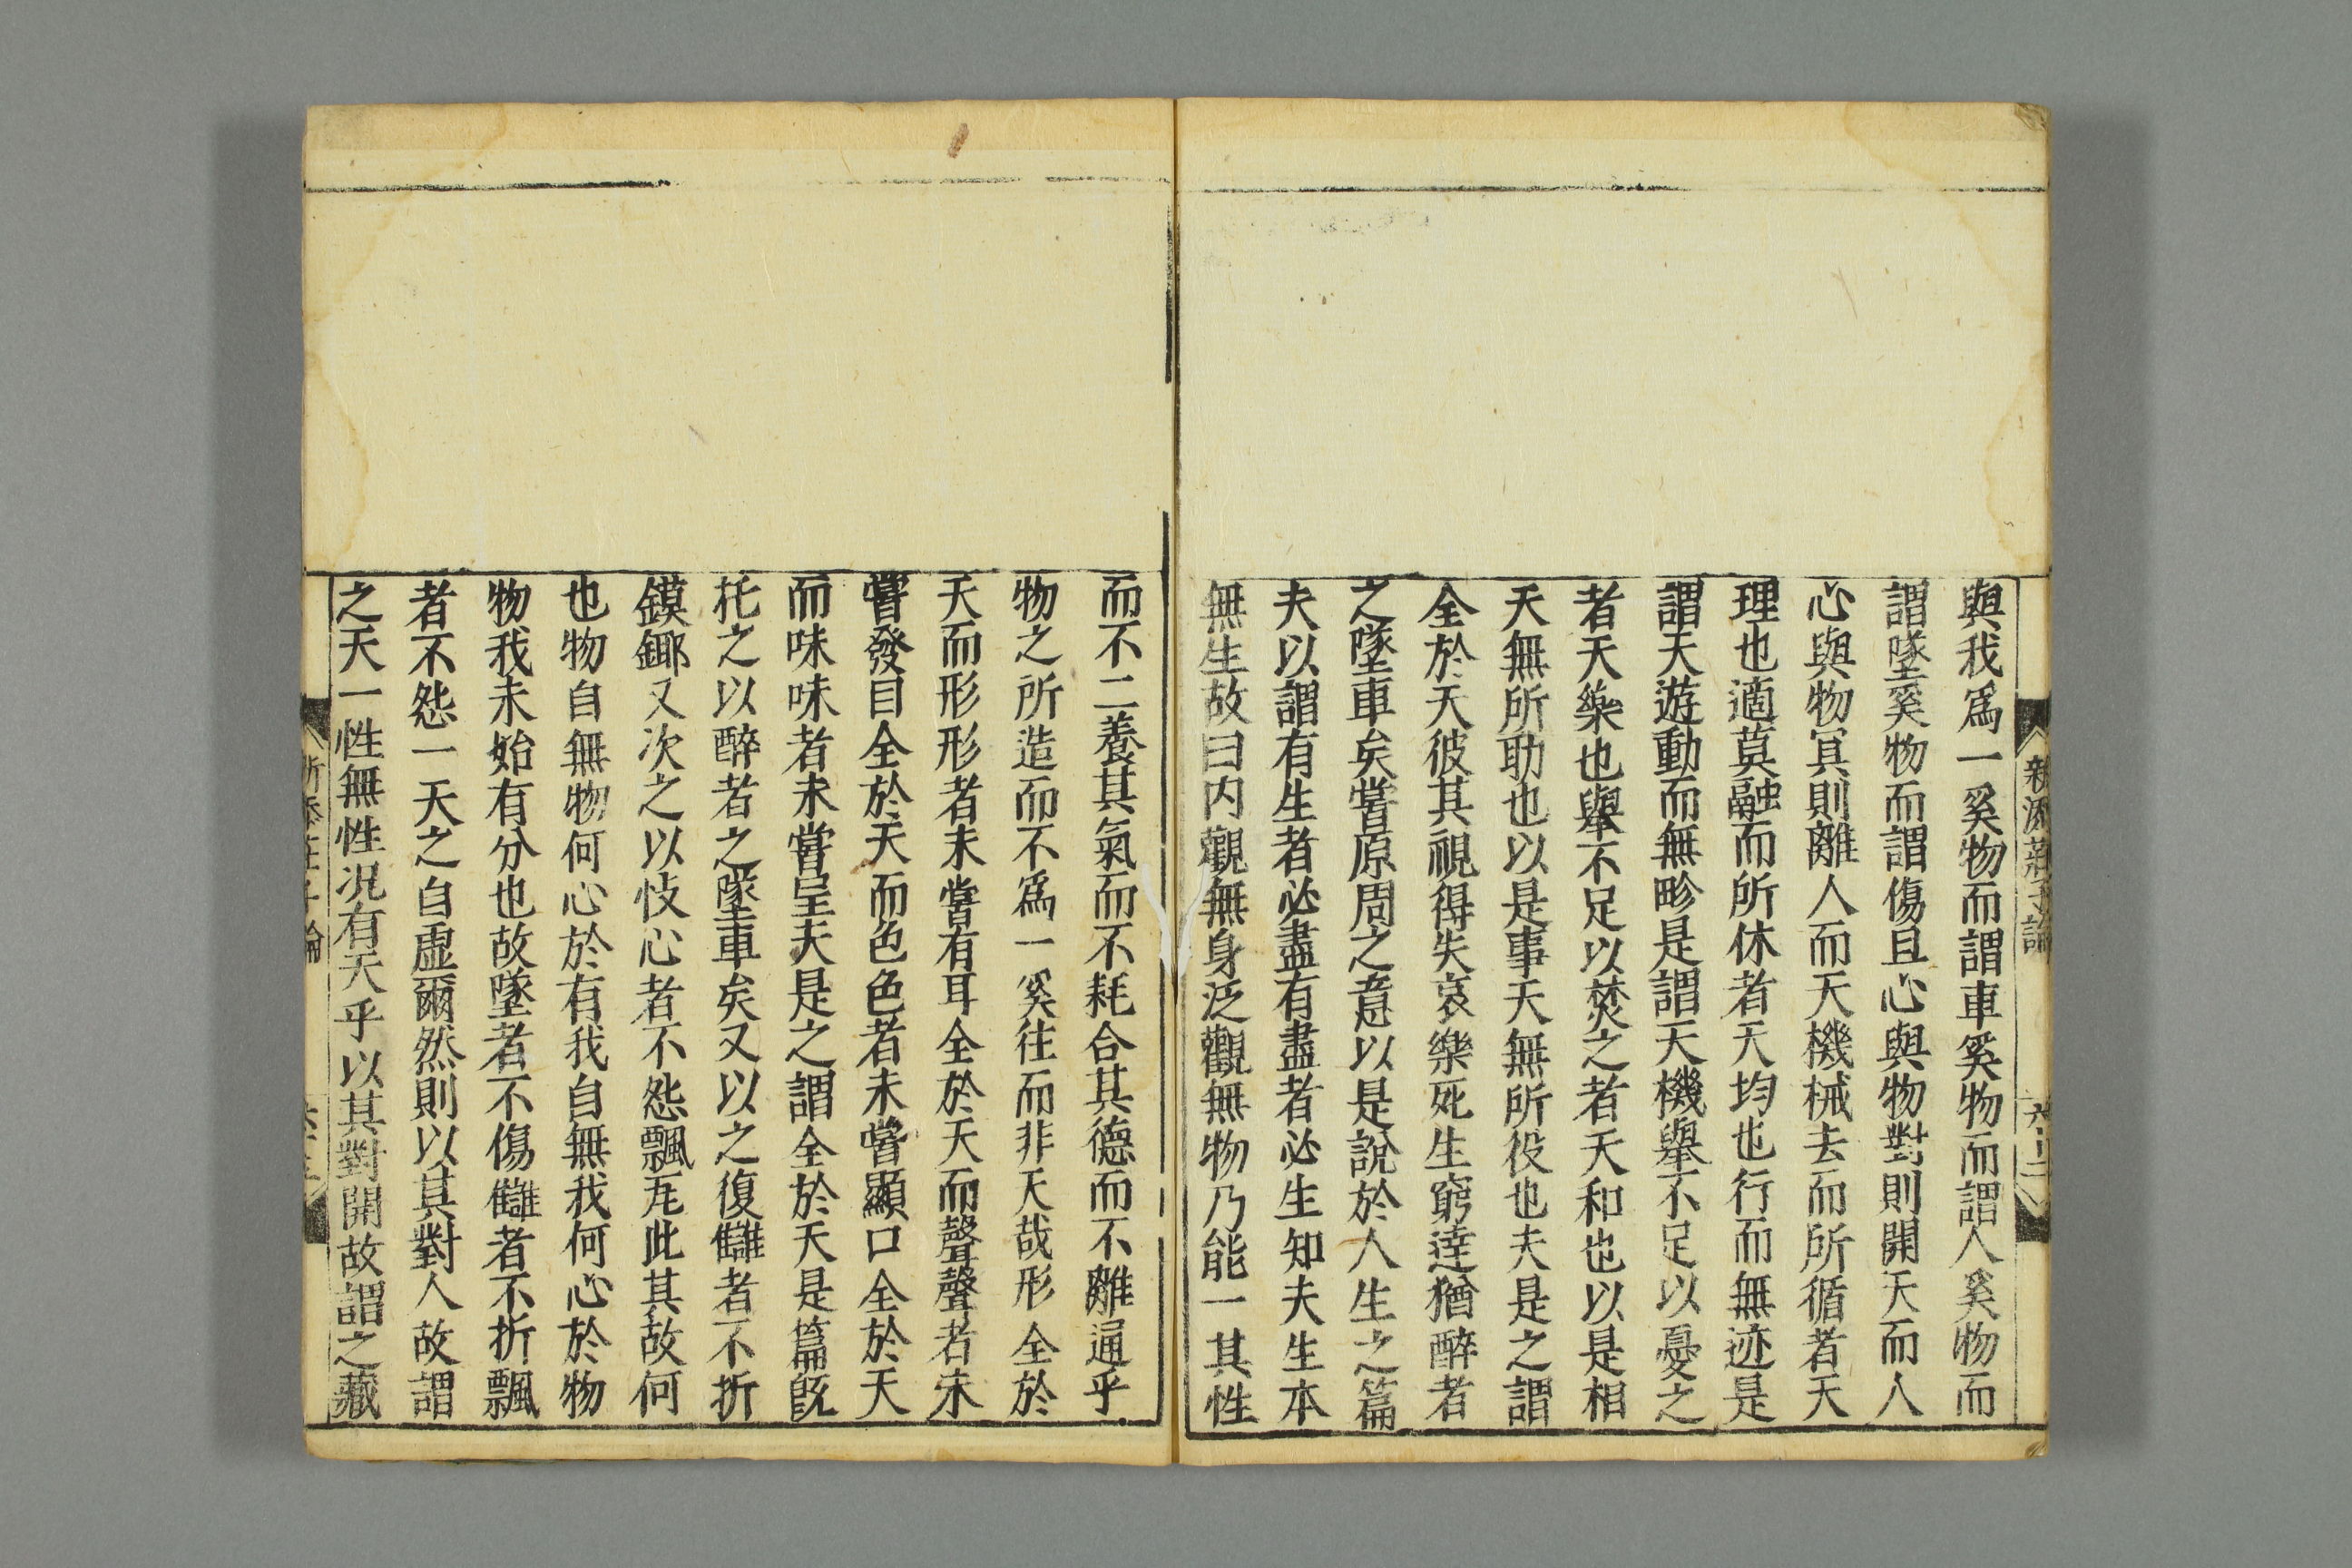 與我爲一奚物而謂車奚物而謂人奚物而
謂墜奚物而謂傷且心與物對則開天而人
心與物冥則離人而天機械去而所循者天
理也適莫融而所休者天均也行而無迹是
謂天遊動而無畛是謂天機舉不足以憂之
者天樂也舉不足以焚之者天和也以是相
天無所助也以是事天無所役也夫是之謂
全於天彼其視得失哀樂死生窮達猶醉者
之墜車矣嘗原周之意以是說於人生之篇
夫以謂有生者必盡有盡者必生知夫生本
無生故曰内觀無身泛觀無物乃能一其性
而不二養其氣而不耗合其德而不離通乎
物之所造而不爲一奚往而非天哉形全於
天而形形者未嘗有耳全於天而聲聲者未
嘗發目全於天而色色者未嘗顯口全於天
而味味者未嘗呈夫是之謂全於天是篇旣
托之以醉者之墜車矣又以之復讎者不折
鏌鎁又次之以忮心者不怨飄瓦此其故何
也物自無物何心於有我自無我何心於物
物我未始有分也故墜者不傷讎者不折飄
者不怨一天之自虛爾然則以其對人故謂
之天一性無性况有天乎以其對開故謂之藏
新添莊子論